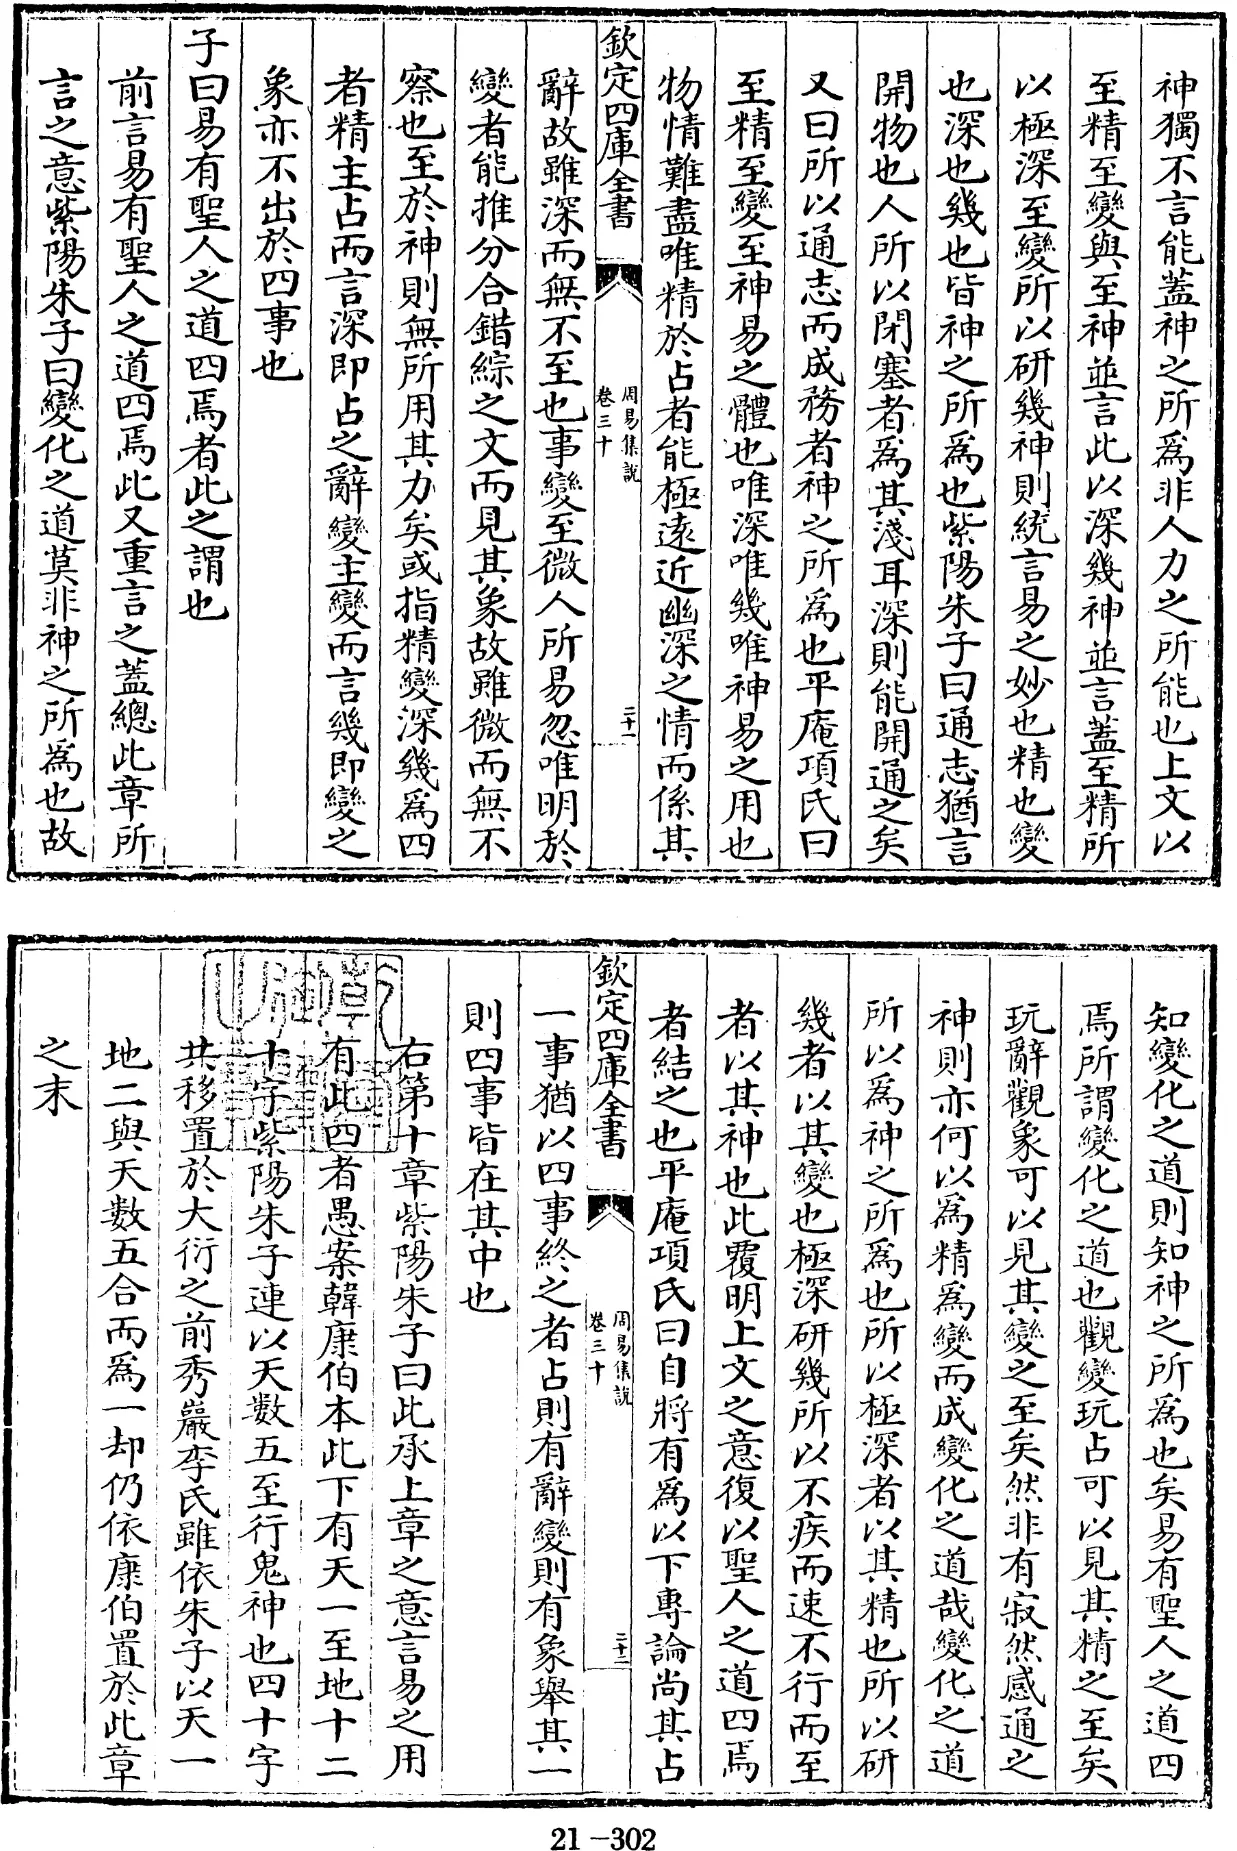 神獨不言能蓋神之所爲非人力之所能也上文以
至精至變與至神並言此以深幾神並言蓋至精所
以極深至變所以研幾神則統言易之妙也精也變
也深也幾也皆神之所爲也紫陽朱子曰通志猶言
開物也人所以閉塞者爲其淺耳深則能開通之矣
又曰所以通志而成務者神之所爲也平庵項氏曰
至精至變至神易之體也唯深唯幾唯神易之用也
物情難盡唯精於占者能極遠近幽深之情而係其
欽定四庫全書
周易集說
卷三十
二十一
辭故雖深而無不至也事變至微人所易忽唯明於
變者能推分合錯綜之文而見其象故雖微而無不
察也至於神則無所用其力矣或指精變深幾爲四
者精主占而言深即占之辭變主變而言幾即變之
象亦不出於四事也
子曰易有聖人之道四焉者此之謂也
前言易有聖人之道四焉此又重言之蓋總此章所
言之意紫陽朱子曰變化之道莫非神之所為也故
知變化之道則知神之所爲也矣易有聖人之道四
焉所謂變化之道也觀變玩占可以見其精之至矣
玩辭觀象可以見其變之至矣然非有寂然感通之
神則亦何以爲精爲變而成變化之道哉變化之道
所以爲神之所爲也所以極深者以其精也所以研
幾者以其變也極深研幾所以不疾而速不行而至
者以其神也此覆明上文之意復以聖人之道四焉
者結之也平庵項氏曰自將有爲以下專論尚其占
欽定四庫全書
周易集說
卷三十
二十二
一事猶以四事終之者占則有辭變則有象舉其一
則四事皆在其中也
右第十章紫陽朱子曰此承上章之意言易之用
有此四者愚案韓康伯本此下有天一至地十二
十字紫陽朱子連以天數五至行鬼神也四十字
共移置於大衍之前秀巖李氏雖依朱子以天一
地二與天數五合而爲一却仍依康伯置於此章
之末
21-302